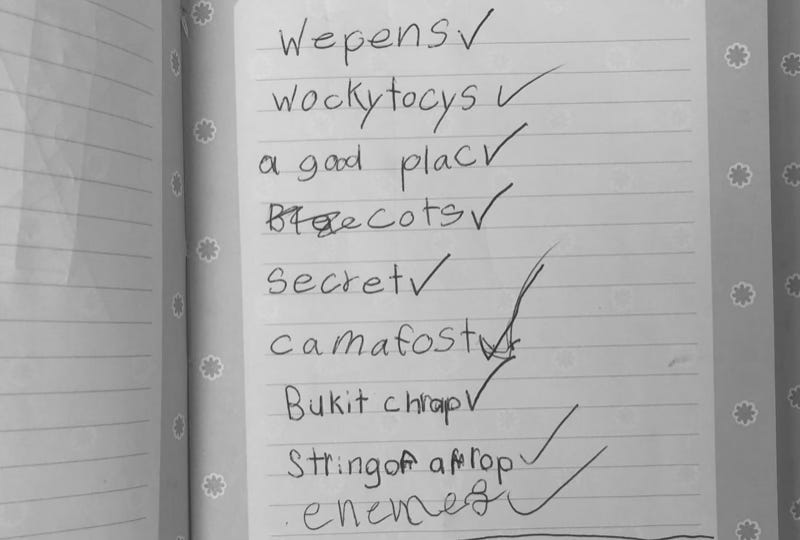 Wepens✓
wockytocys ✓
a good plac✓
cots✓
secret✓
camafost✓
Bukit chrap✓
String of a rop✓
enemes✓